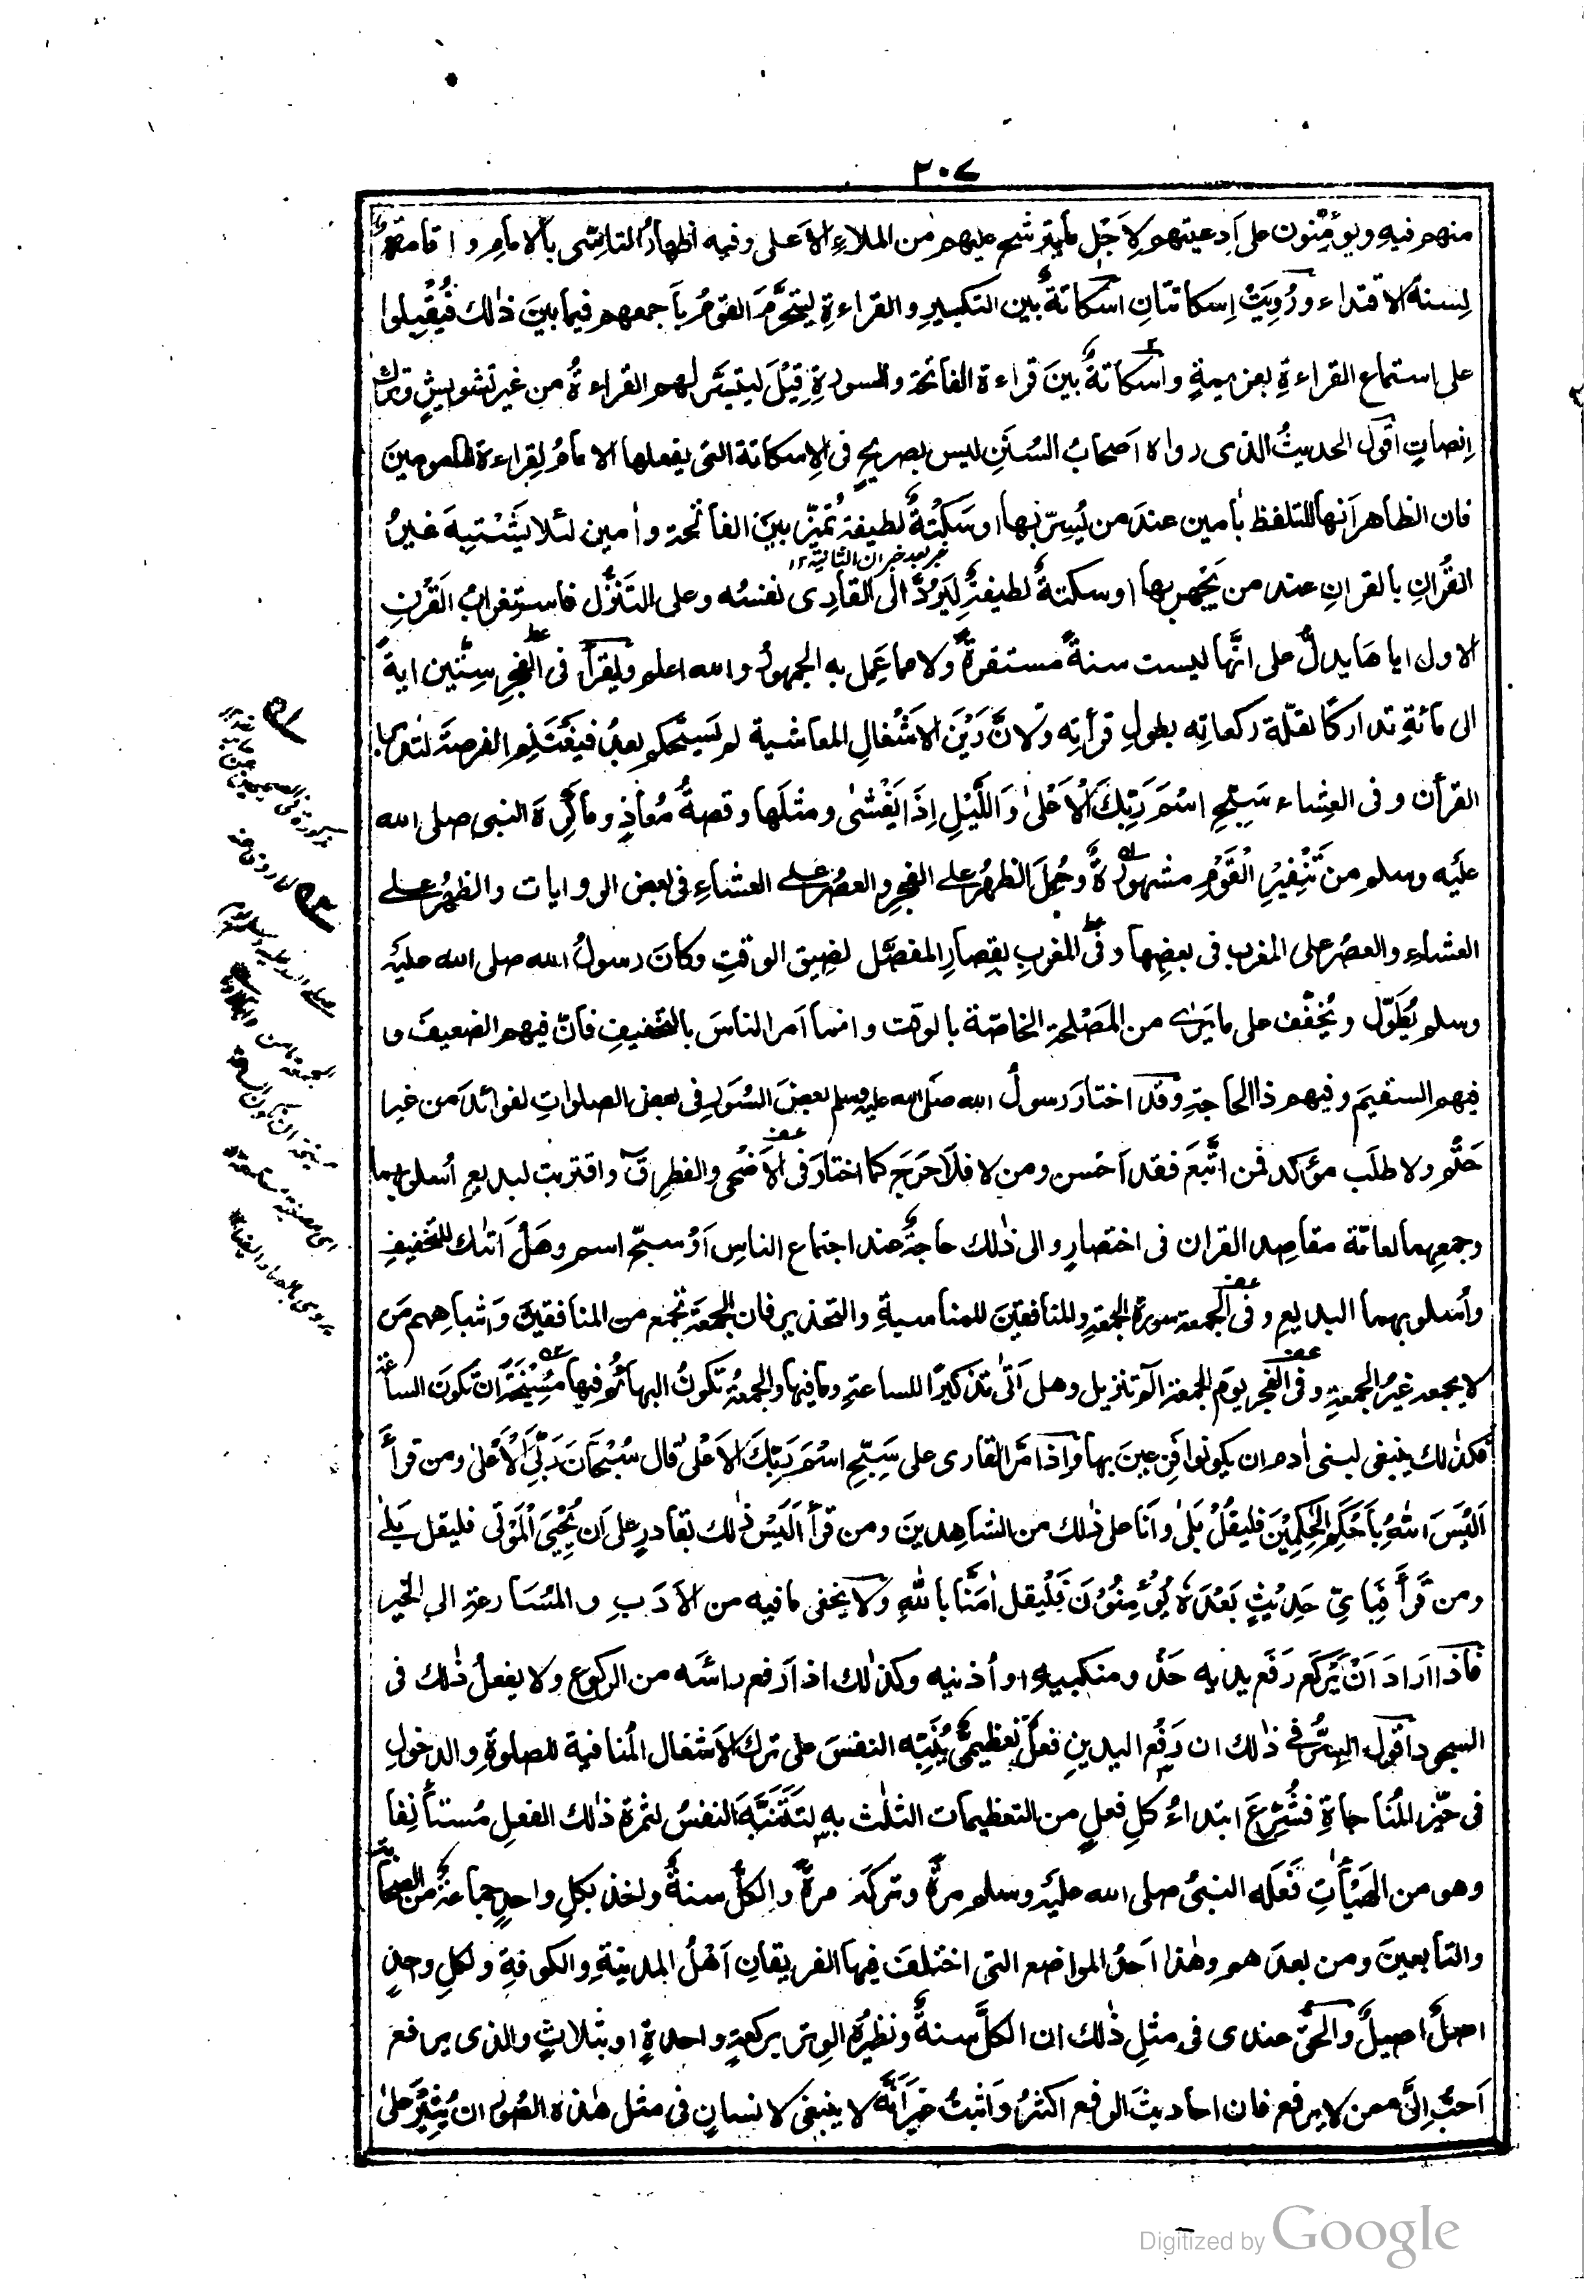 ٢٠٧
منهم فيهِ ويؤمِّنون على اَدعيتهم لِاَجْل ما يترشح عليهم من الملاءِ الاَعلى وفيه اظهارُ التاسِّى بالامامِ واقامةٌ
لِسنة الاقتداء ورُوِيَتْ اِسكاتتانِ اسكاتةٌ بين التكبيرِ والقراءةِ ليتحرَّمَ القومُ باَجمعهم فيما بينَ ذٰلك فيُقْبِلوا
على استماع القراءةِ بعزيمةٍ واسكاتةٌ بينَ قراءة الفاتحة والسورةِ قِيْلَ ليتيسَّر لهم القراءةُ من غير تشويشٍ وترك
اِنصاتٍ اقول الحديثُ الذى رواه اَصحابُ السُنَنِ ليس بصريحٍ فى الاِسكاتة التى يفعلها الامامُ لِقراءة المأمومينَ
فان الظاهر اَنها للتلفظ بٰامين عندَ من يُسِرّ بها او سَكْتةٌ لطيفةٌ تُميّز بينَ الفاتحةِ واٰمين لئلا يَشْتبِهَ غيرُ
خبر بعد خبران الثانية ١٢
القُرانِ بالقرانِ عند من يَجْهر بها او سكتةٌ لطيفةٌ لِيَرُدَّ الى القارِى نفسُه وعلى التَنزُّل فاستغرابُ القَرْنِ
الاول اياها يدلّ على انّها ليست سنةً مستقرةً ولا مما عَمِل به الجمهورُ والله اعلم ويقرأ فى الفجرِ سِتّين ايةً
الى مائةٍ تداركًا لقلّة ركعاتِه بطولِ قرأتِه ولانَّ رَيْنَ الاَشْغالِ المعاشية لم يَسْتحكم بعدُ فيَغْتنِم الفرصةَ لتدبّر
القرأن وفى العِشاء سَبِّحِ اسْمَ رَبِّكَ الْاَعْلٰى وَاللَّيْلِ اِذَا يَغْشٰى ومثلَها وقصةُ مُعاذٍ وما كَرِهَ النبى صلى الله
عليه وسلم من تَنْفِيْرِ الْقَوْمِ مشهورةٌ وحُمِلَ الظهرُ على الفجرِ والعصرُ على العشاءِ فى بعض الروايات والظهرُ على
العشاءِ والعصرُ على المغرب فى بعضِها وفى المغربِ بقِصارِ المفصَّل لضِيق الوقتِ وكانَ رسولُ الله صلى الله عليه
وسلم يُطَوِّل ويُخفِّف على ما يَرٰى من المَصْلحةِ الخاصّة بالوقت وانما اَمر الناسَ بالتخفيفِ فانّ فيهم الضعيفَ و
فيهم السقيمَ وفيهم ذا الحاجةِ وقد اختارَ رسولُ الله صلى الله عليه وسلم بعضَ السُوَرِ فى بعض الصلواتِ لفوائدَ من غير
حَتْمٍ ولا طلَب مؤكد فمن اتَّبَعَ فقد اَحْسن ومن لا فلا حَرَجَ كما اختارَ فى الاَضْحى والفطرِ قٓ واقتربت لبديعِ اُسلوبهما
وجمعِهما لعامّة مقاصِد القران فى اختصارٍ والى ذٰلك حاجةٌ عند اجتماع الناسِ اَوْ سبّح اسم وهَلْ اَتٰىك للتخفيفِ
واُسلوبِهما البديعِ وفى الجمعة سورةَ الجمعةِ والمنافقينَ للمناسبةِ والتحذيرِ فان الجمعةَ تجمَع من المنافقينَ وَاشباهِهم مَن
لا يجمعه غيرُ الجمعةِ وفى الفجرِ يومَ الجمعة الٓمّٓ تنزيل وهل اَتٰى تذكيرًا للساعةِ وما فيها والجمعةُ تكونُ البهائمُ فيها مُسِيْخَةً ان تكونَ الساعةُ
فكذٰلك ينبغى لبنى اٰدم ان يكونوا فزِعينَ بها واذا مرّ القارى على سَبِّحِ اسْمَ رَبِّكَ الْاَعْلٰى قال سُبْحٰانَ رَبِّىَ الْاَعْلٰى ومن قرأَ
اَلَيْسَ اللهُ بِاَحْكَمِ الْحٰكِمِيْنَ فليقُلْ بَلٰى واَنا على ذٰلك من الشاهِدينَ ومن قرأ اَلَيْسَ ذٰلك بقادرٍ على اَن يُّحْيِىَ الْمَوْتٰى فليقل بَلٰى
ومن قَرأَ فَبِاَىِّ حَدِيْثٍ بَعْدَهٗ يُؤْمِنُوْنَ فَلْيقل اٰمَنَّا باللهِ ولا يخفى ما فيه من الاَدَبِ والمُسَارعةِ الى الخيرِ
فاذا ارادَ اَنْ يَّركَع رَفَع يديه حَذْو منكبيهِ او اُذنيه وكذٰلك اذا رفع راسَه من الركوعِ ولا يفعلُ ذٰلك فى
السجود اقول السِرُّ فى ذٰلك ان رَفْع اليدينِ فعلٌ تعظيمىٌّ يُنَبِّه النفسَ على ترك الاَشغال المُنافية للصلوةِ والدخولِ
فى حَيِّز المُناجاةِ فشُرِعَ ابتداءُ كلِ فعلٍ من التعظيمات الثلٰث به لتَتَنَبَّهَ النفسُ لثمرة ذٰلك الفعلِ مُستأنِفا
وهو من الهَيْأٰتِ فَعَله النبىُ صلى الله عليه وسلم مرةً وتركَه مرةً والكلُّ سنةٌ واخذ بكلِ واحدٍ جماعةٌ من الصحابةِ
والتابعينَ ومن بعدَهم وهٰذا اَحدُ المواضع التى اختلفَ فيها الفريقانِ اَهْلُ المدينةِ والكوفةِ ولكلِ واحدٍ
اصلٌ اصيلٌ والحقُّ عندى فى مثلِ ذٰلك ان الكلَّ سنةٌ ونظيرُه الوِتر بركعةٍ واحدةٍ او بثلاثٍ والذى يرفع
اَحبُّ اِلىَّ ممن لا يرفع فان احاديثَ الرفع اكثرُ وَاثبتُ غيرَ اَنَّه لا ينبغى لانسانٍ فى مثل هٰذه الصُورِ ان يُثِيْرَ على
Digitized by Google